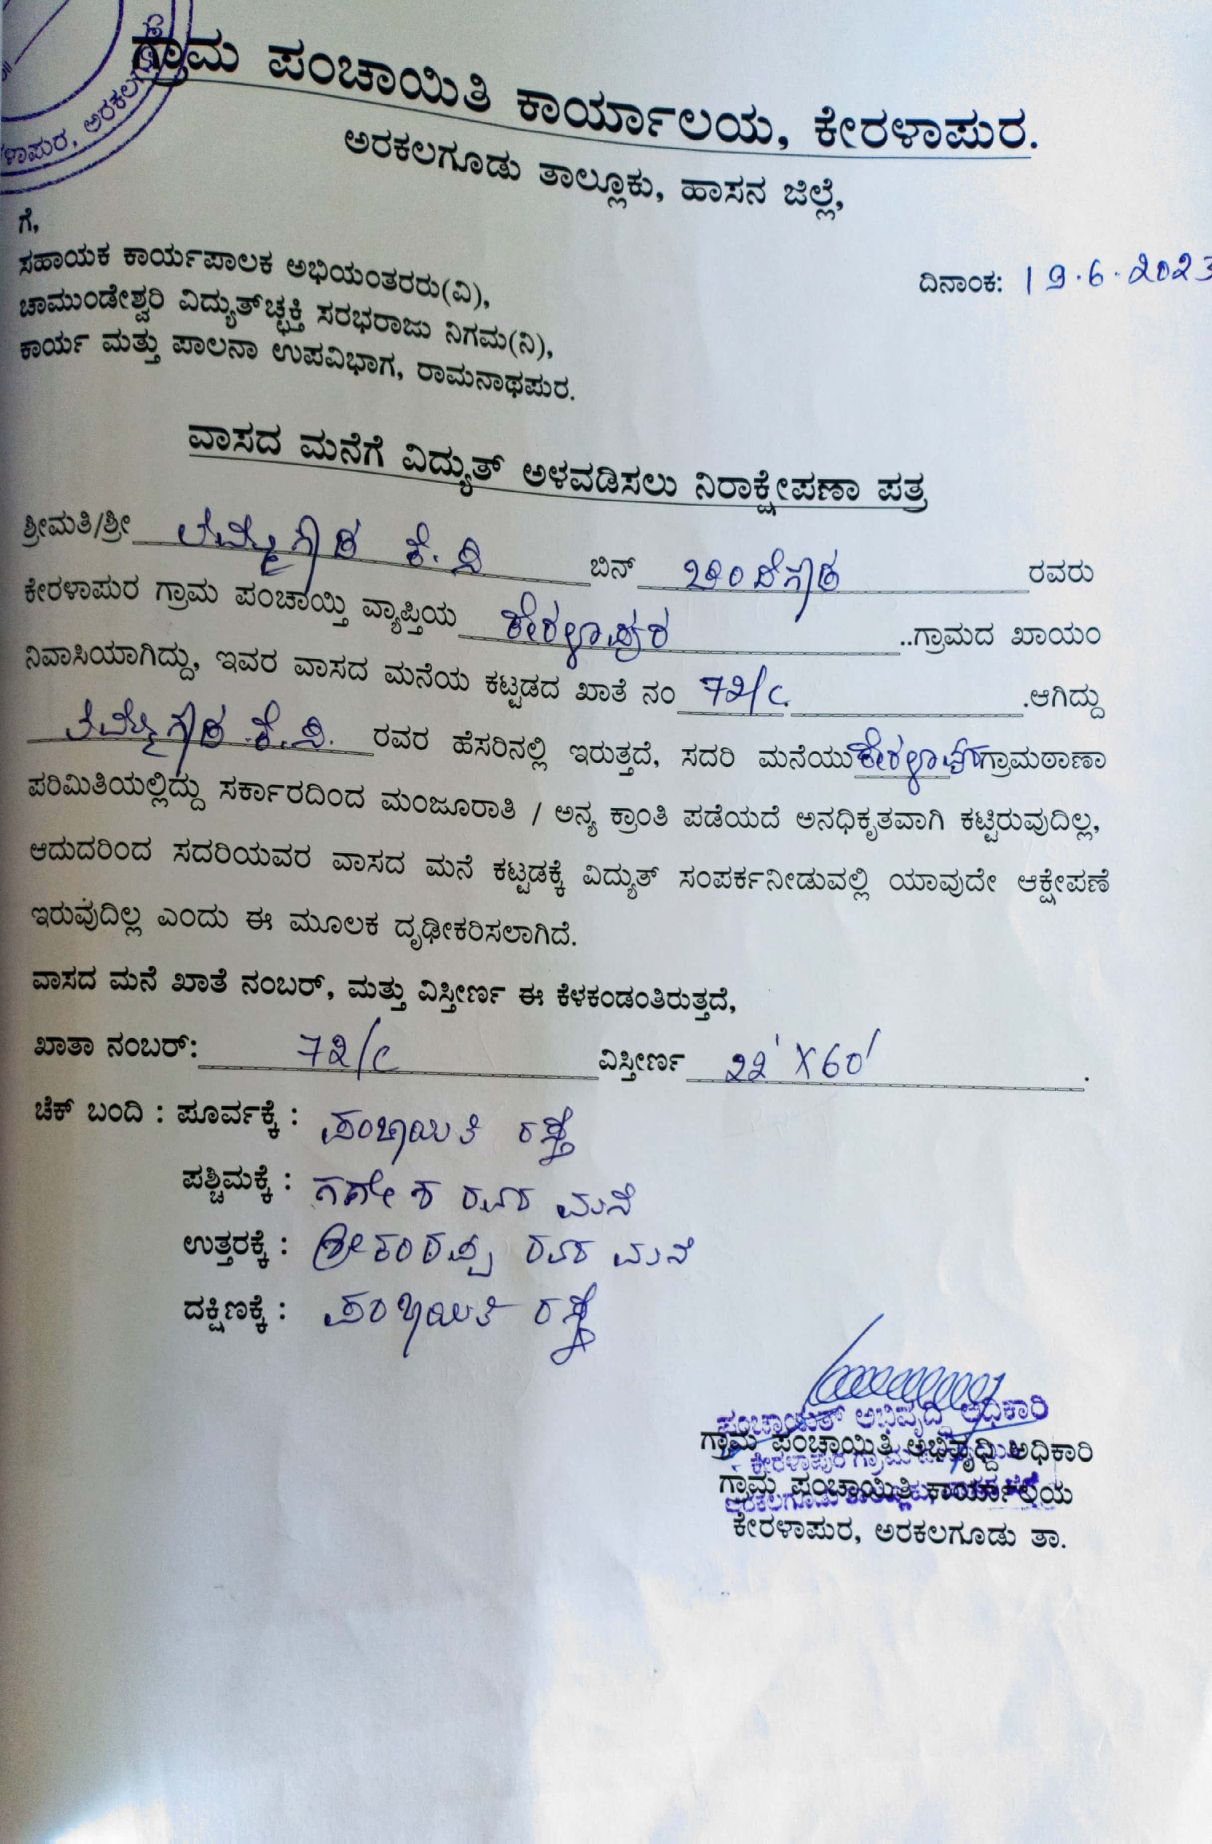 ಗ್ರಾಮ ಪಂಚಾಯಿತಿ ಕಾರ್ಯಾಲಯ, ಕೇರಳಾಪುರ.
ಳಾಪುರ, ಅರಕಲಗೂಡು
ಅರಕಲಗೂಡು ತಾಲ್ಲೂಕು, ಹಾಸನ ಜಿಲ್ಲೆ,
ಗೆ,
ದಿನಾಂಕ: 19.6.2023
ಸಹಾಯಕ ಕಾರ್ಯಪಾಲಕ ಅಭಿಯಂತರರು(ವಿ),
ಚಾಮುಂಡೇಶ್ವರಿ ವಿದ್ಯುತ್‌ಚ್ಛಕ್ತಿ ಸರಭರಾಜು ನಿಗಮ(ನಿ),
ಕಾರ್ಯ ಮತ್ತು ಪಾಲನಾ ಉಪವಿಭಾಗ, ರಾಮನಾಥಪುರ.
ವಾಸದ ಮನೆಗೆ ವಿದ್ಯುತ್ ಅಳವಡಿಸಲು ನಿರಾಕ್ಷೇಪಣಾ ಪತ್ರ
ಶ್ರೀಮತಿ/ಶ್ರೀ ತಮ್ಮೇಗೌಡ ಕೆ.ವಿ ಬಿನ್ ರವರು
ಕೇರಳಾಪುರ ಗ್ರಾಮ ಪಂಚಾಯ್ತಿ ವ್ಯಾಪ್ತಿಯ ಕೇರಳಾಪುರ ..ಗ್ರಾಮದ ಖಾಯಂ
ನಿವಾಸಿಯಾಗಿದ್ದು, ಇವರ ವಾಸದ ಮನೆಯ ಕಟ್ಟಡದ ಖಾತೆ ನಂ 72/c .ಆಗಿದ್ದು
ತಮ್ಮೇಗೌಡ ಕೆ.ವಿ. ರವರ ಹೆಸರಿನಲ್ಲಿ ಇರುತ್ತದೆ, ಸದರಿ ಮನೆಯು ಕೇರಳಾಪುರ ಗ್ರಾಮಠಾಣಾ
ಪರಿಮಿತಿಯಲ್ಲಿದ್ದು ಸರ್ಕಾರದಿಂದ ಮಂಜೂರಾತಿ / ಅನ್ಯ ಕ್ರಾಂತಿ ಪಡೆಯದೆ ಅನಧಿಕೃತವಾಗಿ ಕಟ್ಟಿರುವುದಿಲ್ಲ,
ಆದುದರಿಂದ ಸದರಿಯವರ ವಾಸದ ಮನೆ ಕಟ್ಟಡಕ್ಕೆ ವಿದ್ಯುತ್ ಸಂಪರ್ಕನೀಡುವಲ್ಲಿ ಯಾವುದೇ ಆಕ್ಷೇಪಣೆ
ಇರುವುದಿಲ್ಲ ಎಂದು ಈ ಮೂಲಕ ದೃಢೀಕರಿಸಲಾಗಿದೆ.
ವಾಸದ ಮನೆ ಖಾತೆ ನಂಬರ್, ಮತ್ತು ವಿಸ್ತೀರ್ಣ ಈ ಕೆಳಕಂಡಂತಿರುತ್ತದೆ,
ಖಾತಾ ನಂಬರ್: 72/c ವಿಸ್ತೀರ್ಣ 22'X60' .
ಚೆಕ್ ಬಂದಿ : ಪೂರ್ವಕ್ಕೆ : ಪಂಚಾಯಿತಿ ರಸ್ತೆ
ಪಶ್ಚಿಮಕ್ಕೆ : ಗಣೇಶ ರವರ ಮನೆ
ಉತ್ತರಕ್ಕೆ : ಶ್ರೀಕಂಠಪ್ಪ ರವರ ಮನೆ
ದಕ್ಷಿಣಕ್ಕೆ : ಪಂಚಾಯಿತಿ ರಸ್ತೆ
ಪಂಚಾಯತ್ ಅಭಿವೃದ್ಧಿ ಅಧಿಕಾರಿ
ಗ್ರಾಮ ಪಂಚಾಯಿತಿ ಅಭಿವೃದ್ಧಿ ಅಧಿಕಾರಿ
ಕೇರಳಾಪುರ ಗ್ರಾಮ
ಗ್ರಾಮ ಪಂಚಾಯಿತಿ ಕಾರ್ಯಾಲಯ
ಕೇರಳಾಪುರ, ಅರಕಲಗೂಡು ತಾ.